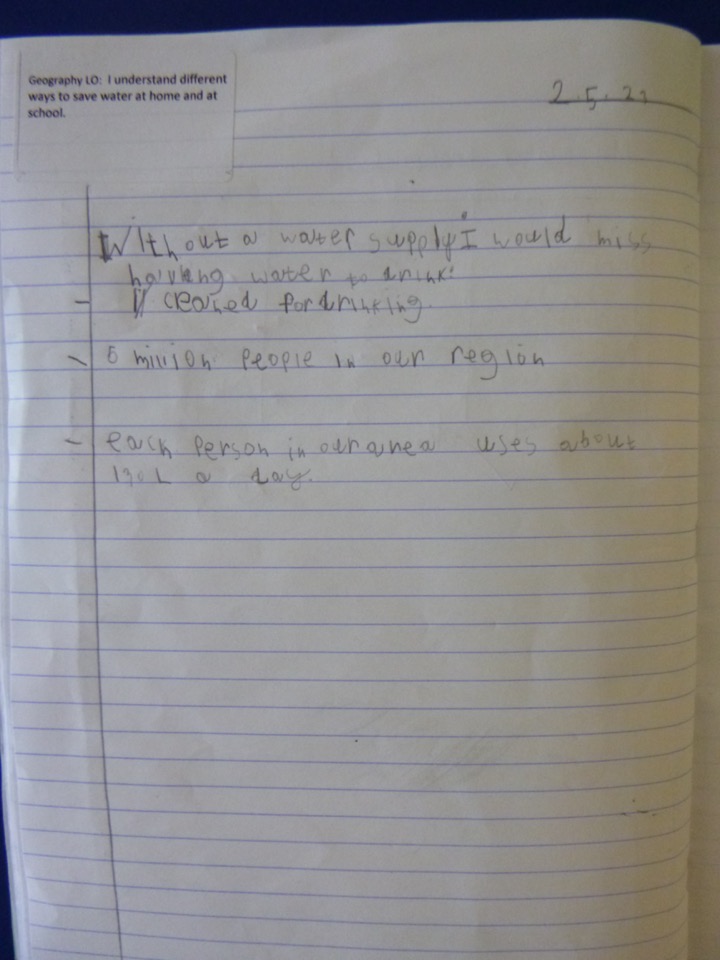 Geography LO: I understand different
ways to save water at home and at
school.
2.5.22
Without a water supply I would miss
having water to drink.
- cleaned for drinking.
- 6 million people in our region
- each person in our area uses about
130L a day.